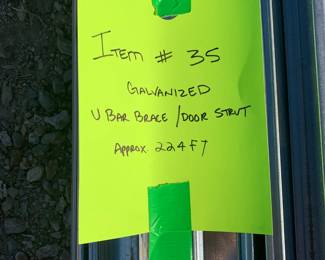 ITEM # 35
GALVANIZED
U BAR BRACE / DOOR STRUT
APPROX. 224 FT